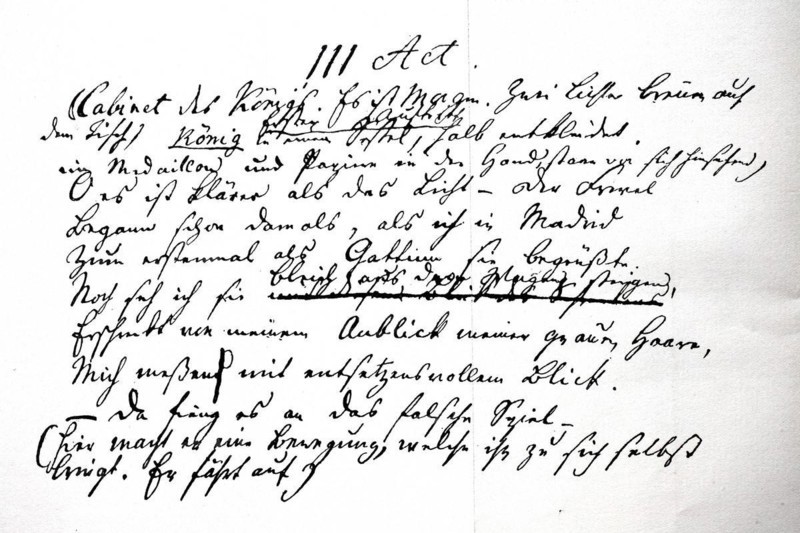 III Act.
(Cabinet des Königs. Es ist Morgen. Zwei Lichter brennen auf
Erster Auftritt
dem Tisch) König in einem Sessel, halb entkleidet.
ein Medaillon und Papiere in der Hand, vor sich hinsehend)
O es ist klärer als das Licht — Der Frevel
Begann schon damals, als ich in Madrid
Zum erstenmal als Gattinn sie begrüßte.
bleich aus dem Wagen steigen,
Noch seh ich sie
Erschrekt von meinem Anblick meiner grauen Haare,
Mich meßend mit entsetzensvollem Blick.
— Da fieng es an das falsche Spiel —
(hier macht er eine Bewegung, welche ihn zu sich selbst
bringt. Er fährt auf)